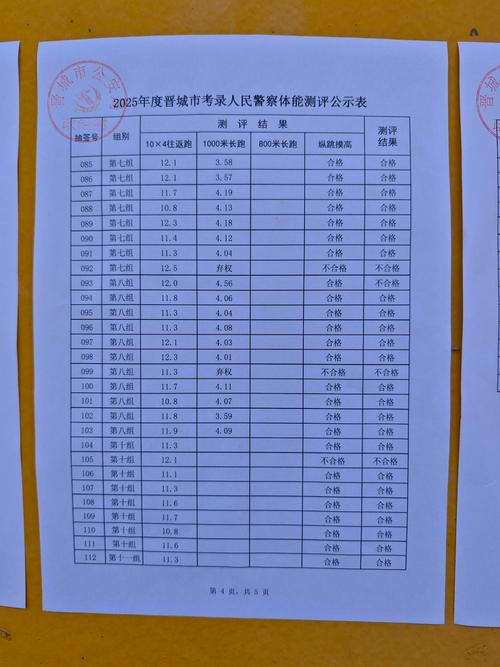 晋城市公安
2025年度晋城市考录人民警察体能测评公示表
抽签号 组别 测评结果 测评结果
10×4往返跑 1000米长跑 800米长跑 纵跳摸高
085 第七组 12.1 3.58 合格 合格
086 第七组 12.1 3.57 合格 合格
087 第七组 11.7 4.19 合格 合格
088 第七组 10.8 4.13 合格 合格
089 第七组 12.3 4.18 合格 合格
090 第七组 11.4 4.12 合格 合格
091 第七组 11.3 4.04 合格 合格
092 第七组 12.5 弃权 不合格 不合格
093 第八组 12.0 4.56 合格 不合格
094 第八组 11.8 4.06 合格 合格
095 第八组 11.3 4.04 合格 合格
096 第八组 11.3 4.08 合格 合格
097 第八组 12.2 4.03 合格 合格
098 第八组 12.3 4.01 合格 合格
099 第八组 11.3 弃权 不合格 不合格
100 第八组 11.7 4.11 合格 合格
101 第八组 10.8 4.07 合格 合格
102 第八组 11.8 3.59 合格 合格
103 第八组 11.9 4.09 合格 合格
104 第十组 11.3 合格 合格
105 第十组 12.1 不合格 不合格
106 第十组 11.1 合格 合格
107 第十组 11.3 合格 合格
108 第十组 11.6 合格 合格
109 第十组 11.7 合格 合格
110 第十组 10.8 合格 合格
111 第十组 11.6 合格 合格
112 第十一组 11.3 合格 合格
第 4 页，共 5 页